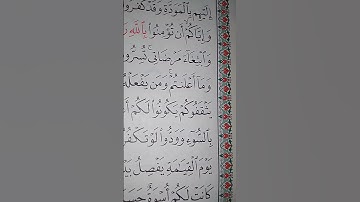 إِلَيْهِم بِٱلْمَوَدَّةِ وَقَدْ كَفَرُوا۟
وَإِيَّاكُمْ أَن تُؤْمِنُوا۟ بِٱللَّهِ
وَٱبْتِغَآءَ مَرْضَاتِى تُسِرُّونَ
وَمَآ أَعْلَنتُمْ وَمَن يَفْعَلْهُ
يَثْقَفُوكُمْ يَكُونُوا۟ لَكُمْ
بِٱلسُّوٓءِ وَوَدُّوا۟ لَوْ تَكْفُرُونَ
يَوْمَ ٱلْقِيَٰمَةِ يَفْصِلُ
كَانَتْ لَكُمْ أُسْوَةٌ حَسَنَةٌ